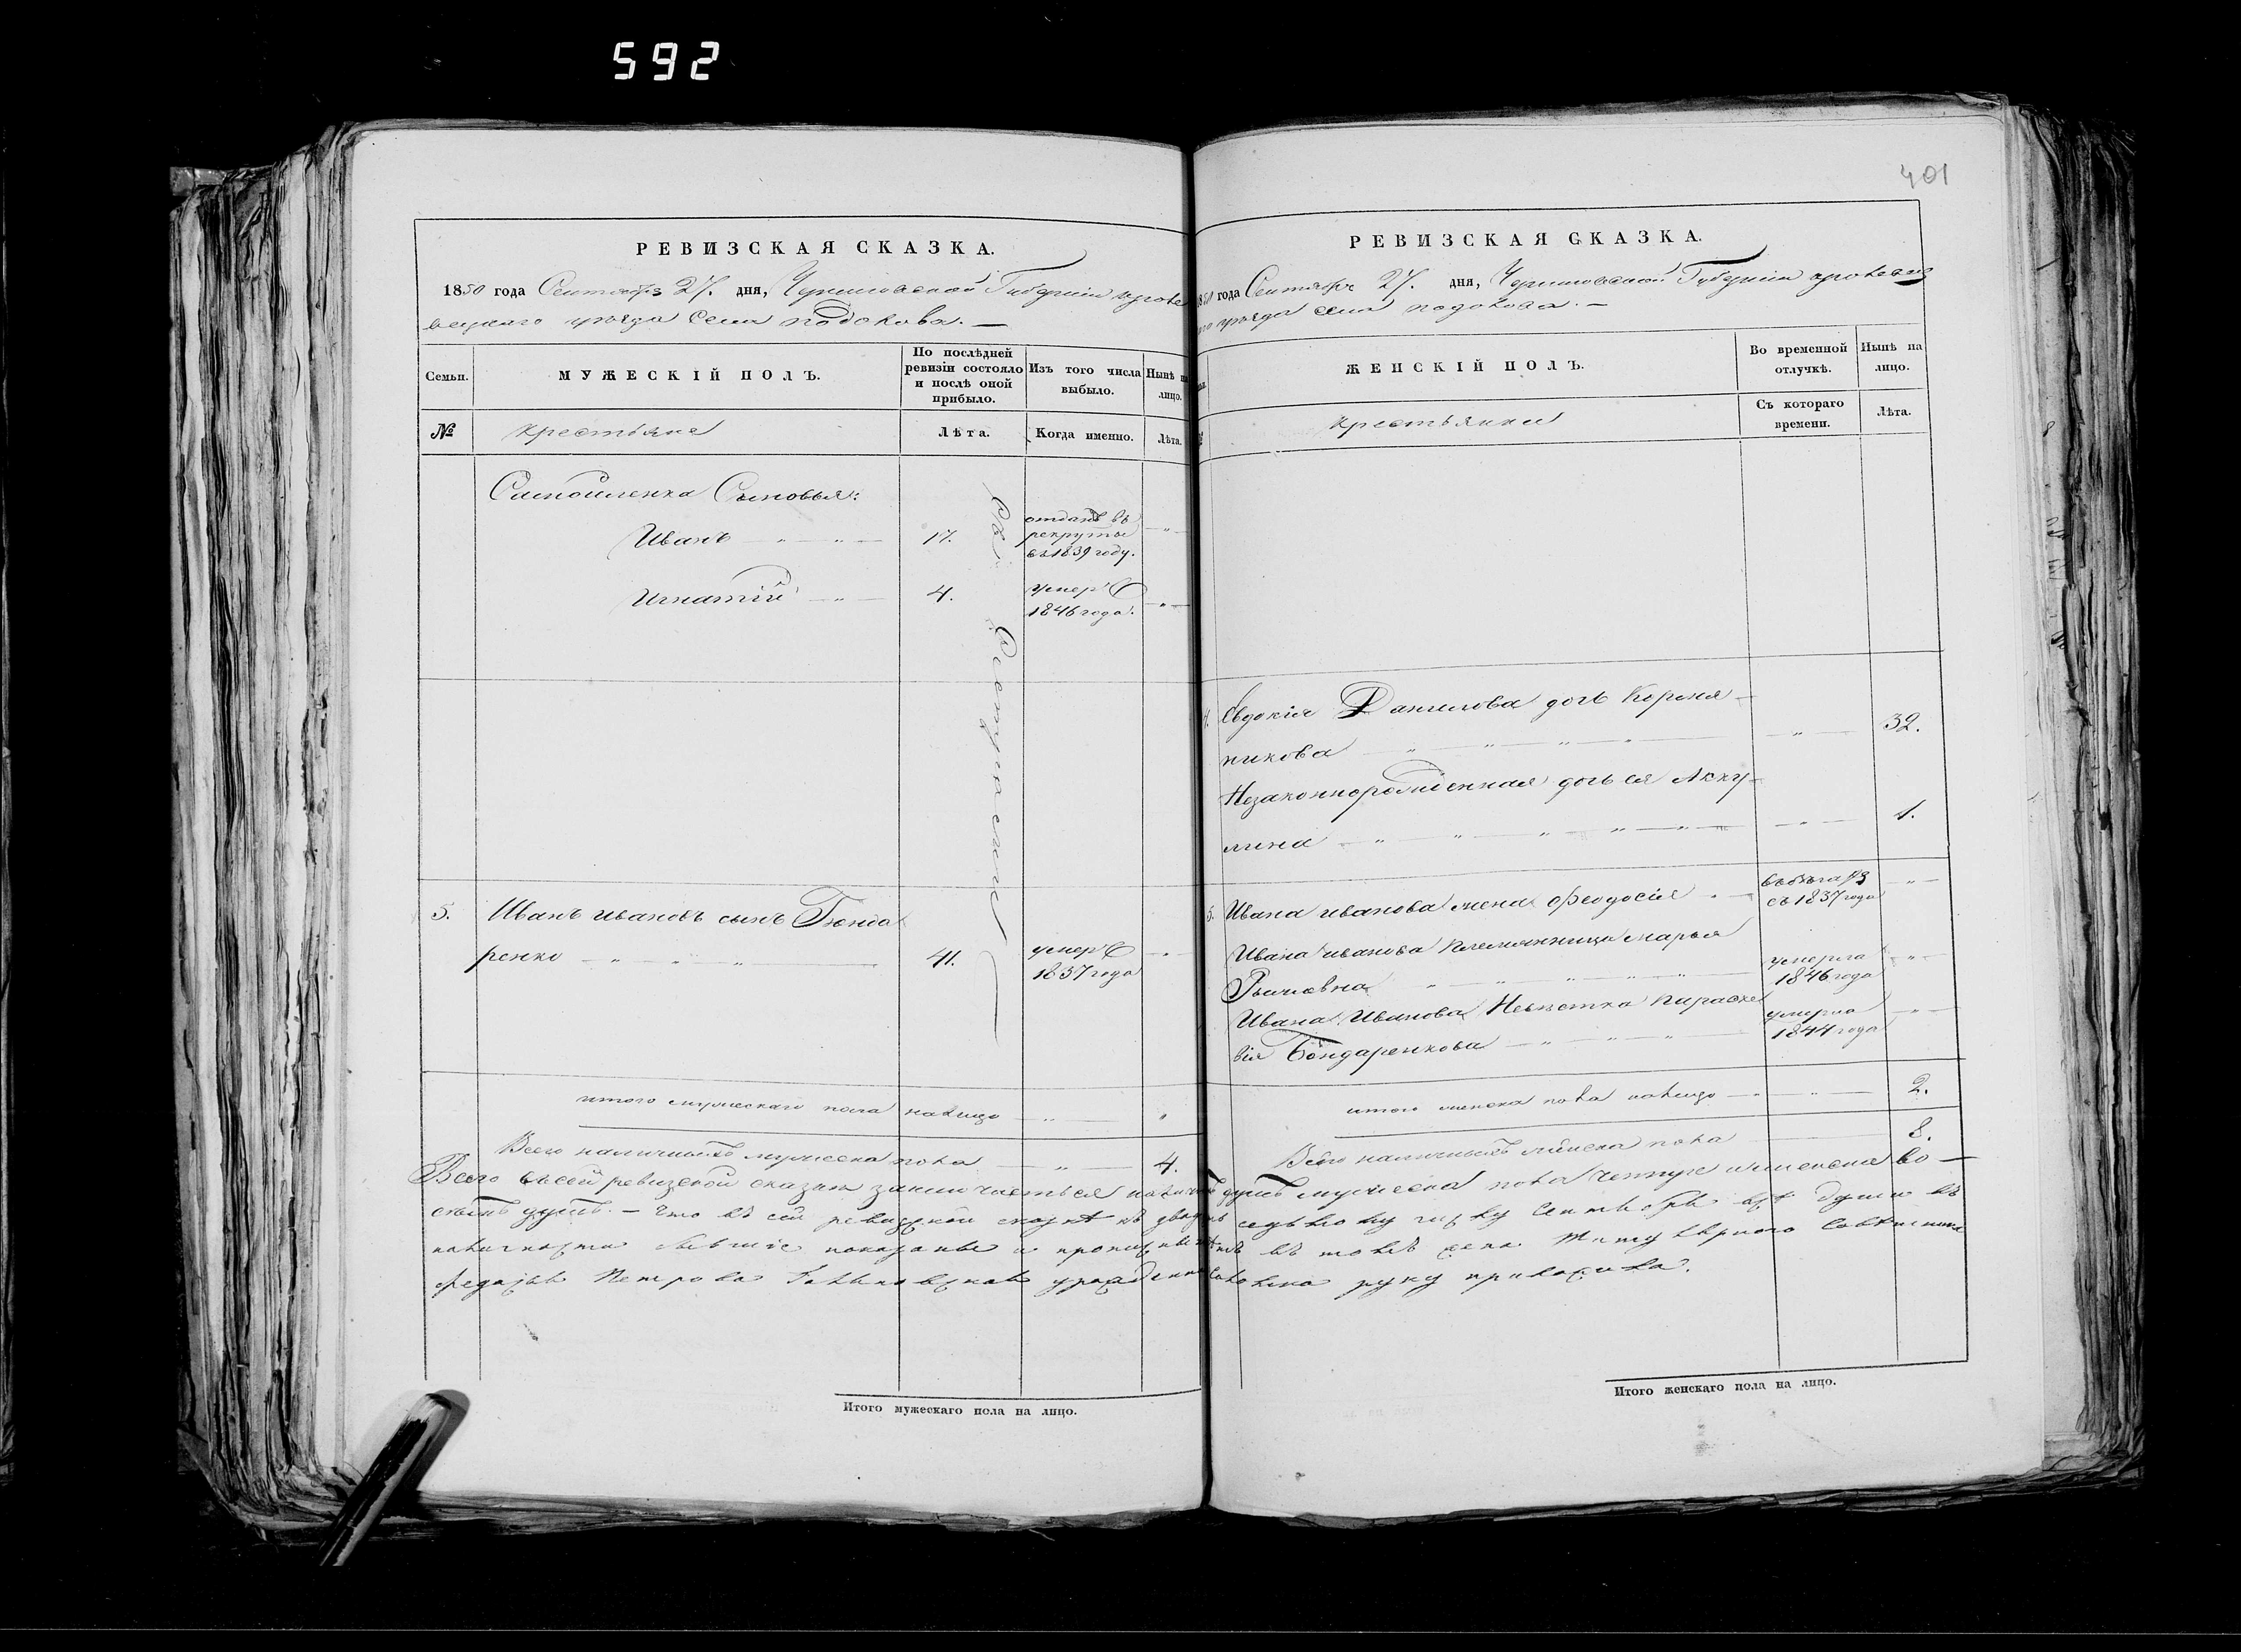 592
401
РЕВИЗСКАЯ СКАЗКА.
1850 года Сентября 27. дня, Черниговской Губерніи кролевецкаго уѣзда Села подолова. —
Семьи.
МУЖЕСКІЙ ПОЛЪ.
По послѣдней ревизіи состояло и послѣ оной прибыло.
Изъ того числа выбыло.
Нынѣ на лицо.
№
крестьяне
Лѣта.
Когда именно.
Лѣта.
Самойленка Сыновья:
Иванъ 17. отданъ въ рекруты въ 1839 году.
Игнатій 4. умеръ 1846 года.
5. Иванъ ивановъ сынъ Бондаренко 41. умеръ 1837 года
итого мужескаго пола налицо
Всего наличныхъ мужеска пола 4.
РЕВИЗСКАЯ СКАЗКА.
1850 года Сентября 27. дня, Черниговской Губерніи кролевецкаго уѣзда села подолова. —
ЖЕНСКІЙ ПОЛЪ.
Во временной отлучкѣ.
Нынѣ на лицо.
Съ котораго времени.
Лѣта.
крестьянки
4. Евдокія Данилова дочь Кореняникова 32.
Незаконнорожденная дочь ея Аккулина 1.
5. Ивана иванова жена Феодосія въ бѣгахъ съ 1837 года
Ивана иванова племянница марья умерла 1846 года
Ивана Иванова Невѣстка Параскевія Бондаренкова умерла 1844 года
итого женска пола налицо 2.
Всего наличныхъ женска пола 8.
Всего въ сей ревизской сказкѣ заключается наличныхъ душъ мужеска пола четыре и женска восемь душъ. — Что въ сей ревизской сказкѣ къ двадцать седьмому числу Сентября всѣ души въ
наличности бывшіе показаны и пропущенныхъ нѣтъ въ томъ
Петрова руку приложила.
Итого мужескаго пола на лицо.
Итого женскаго пола на лицо.